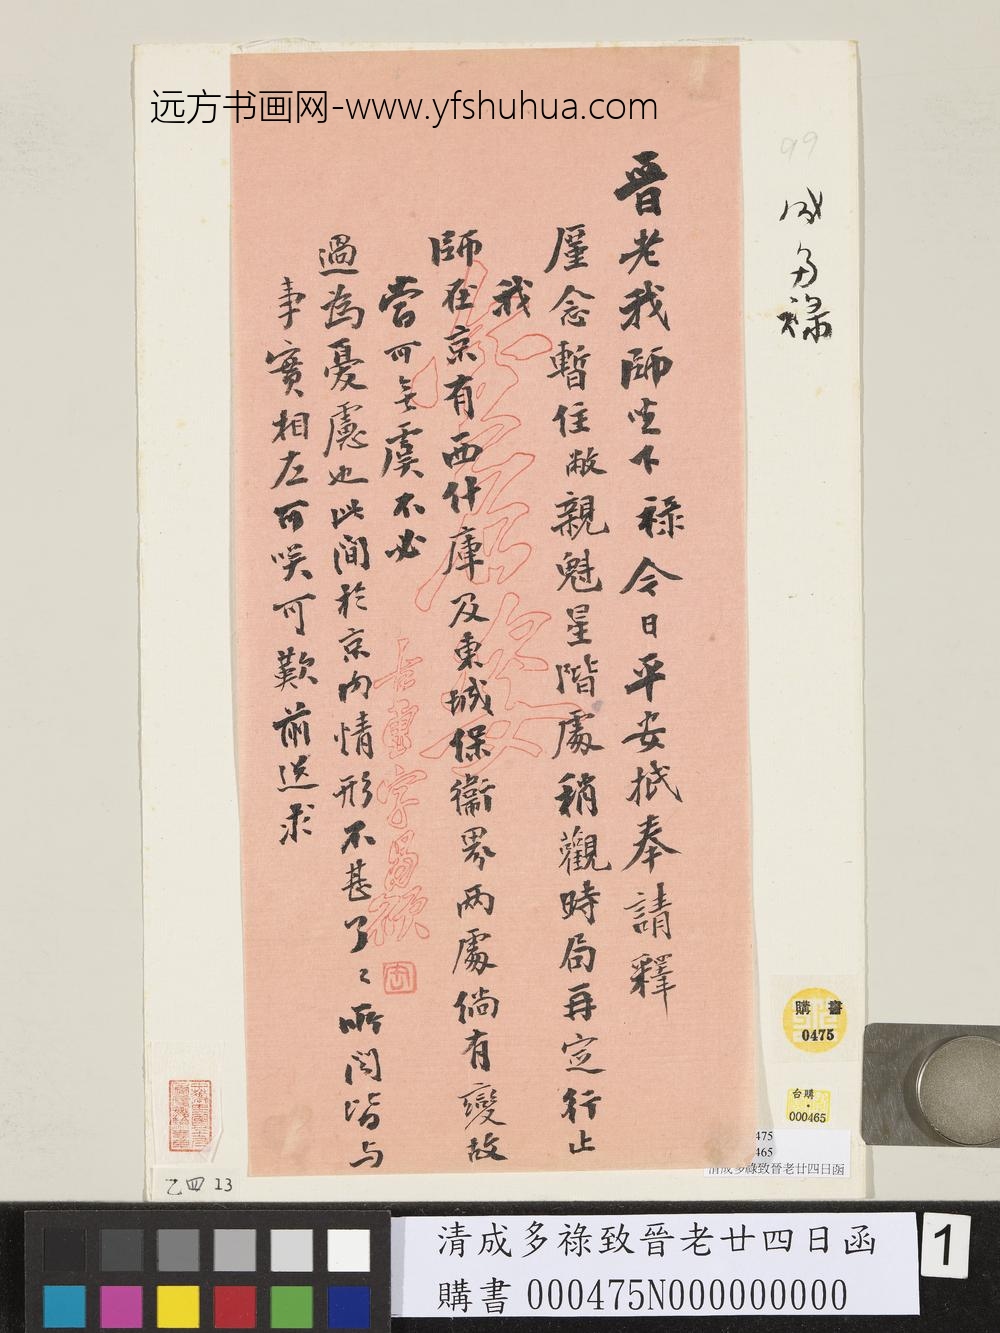 远方书画网-www.yfshuhua.com
99
成多祿
晋老我師坐下祿今日平安抵奉請釋
廑念暫住敝親魁星階處稍觀時局再定行止
我
師在京有西什庫及東城保衞界兩處倘有變故
當可無虞不必
過為憂慮也此間於京內情形不甚了〻所聞皆与
事實相左可笑可歎前送求
購書
0475
台購
000465
475
465
清成多祿致晉老廿四日函
乙四 13
清成多祿致晉老廿四日函
購書 000475N000000000
1